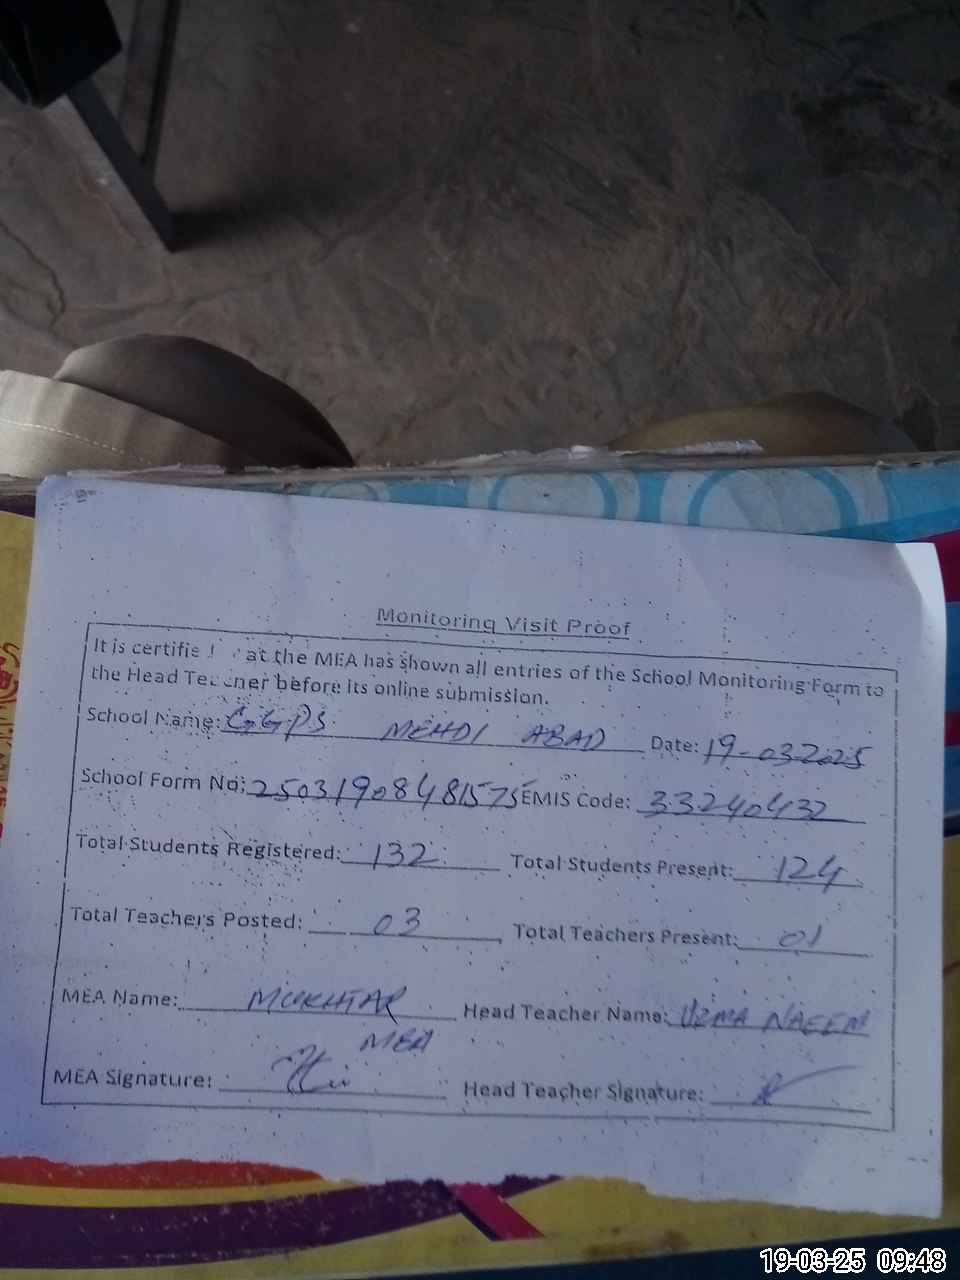 Monitoring Visit Proof
It is certifie at the MEA has shown all entries of the School Monitoring Form to
the Head Teacher before its online submission.
School Name: GGPS MEHDI ABAD Date: 19-03-2025
School Form No: 25031908481575 EMIS Code: 33240432
Total Students Registered: 132 Total Students Present: 124
Total Teachers Posted: 03 Total Teachers Present: 01
MEA Name: MUKHTAR Head Teacher Name: UZMA NAEEM
MEA
MEA Signature: Head Teacher Signature:
19-03-25 09:48